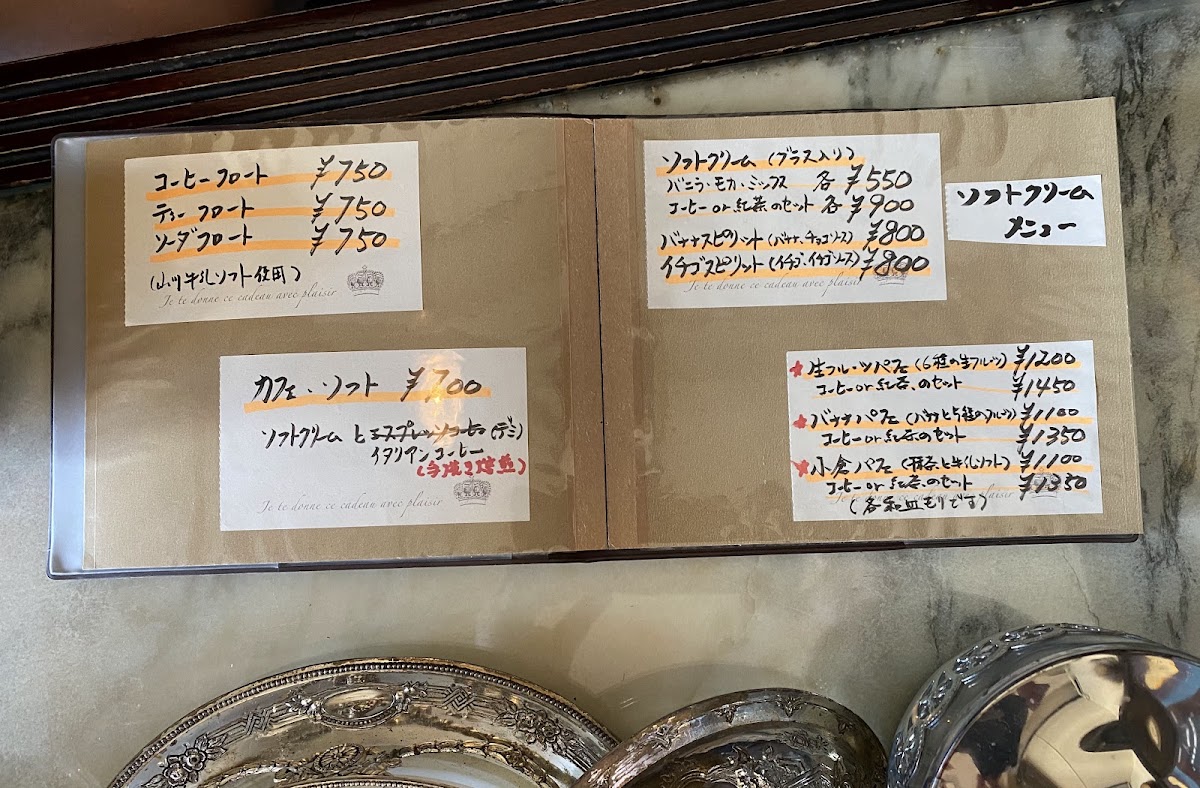 コーヒーフロート ¥750
ティーフロート ¥750
ソーダフロート ¥750
(山川牛乳ソフト使用)
Je te donne ce cadeau avec plaisir
カフェ・ソフト ¥700
ソフトクリームとエスプレッソコーヒー(デミ)
イタリアンコーヒー
Je te donne ce cadeau avec plaisir
ソフトクリーム (グラス入り)
バニラ・モカ・ミックス 各¥550
コーヒーor紅茶のセット 各¥900
バナナスピリット(バナナ、チョコソース) ¥800
イチゴスピリット(イチゴ、イチゴソース) ¥800
Je te donne ce cadeau avec plaisir
ソフトクリーム
メニュー
★生フルーツパフェ(6種の生フルーツ) ¥1200
コーヒーor紅茶のセット ¥1450
★バナナパフェ(バナナと5種のフルーツ) ¥1100
コーヒーor紅茶のセット ¥1350
★小倉パフェ(抹茶と牛乳ソフト) ¥1100
コーヒーor紅茶のセット ¥1350
(各和皿もりです)